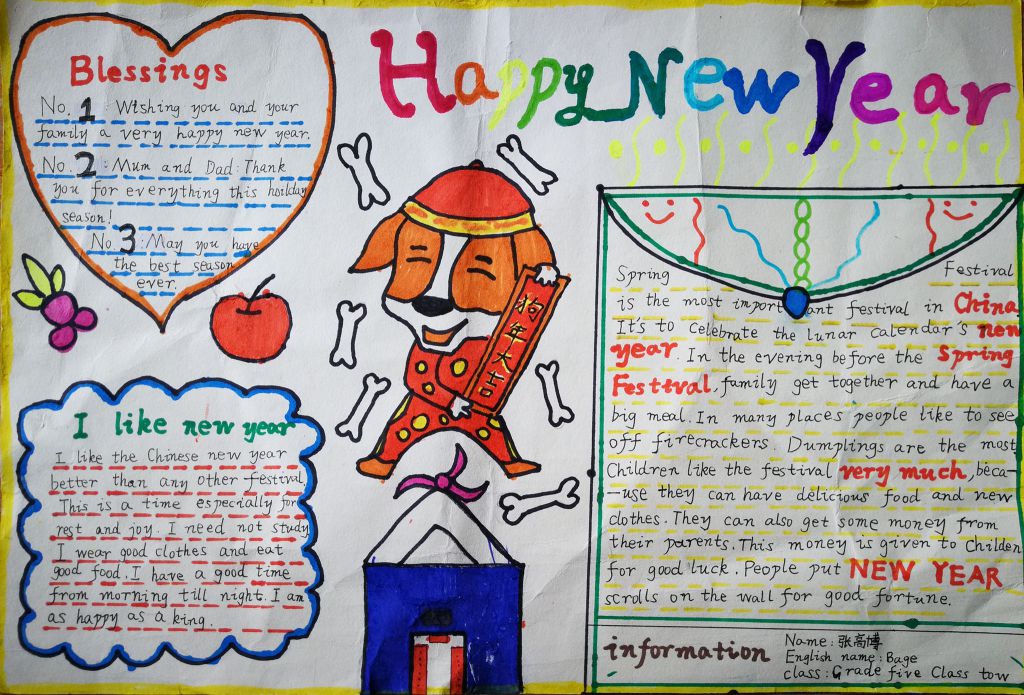 Happy New Year
Blessings
No. 1: Wishing you and your
family a very happy new year.
No. 2: Mum and Dad: Thank
you for everything this hoilday
season!
No 3: May you have
the best season
ever.
狗年大吉
I like new year
I like the Chinese new year
better than any other festival,
This is a time especially for
rest and joy. I need not study
I wear good clothes and eat
good food. I have a good time
from morning till night. I am
as happy as a king.
Spring Festival
is the most important festival in China
It's to celebrate the lunar calendar's new
year. In the evening before the spring
Festival, family get together and have a
big meal. In many places people like to see
off firecrackers. Dumplings are the most
Children like the festival very much, beca-
-use they can have delicious food and new
clothes. They can also get some money from
their parents. This money is given to Childen
for good luck. People put NEW YEAR
scrolls on the wall for good fortune.
information
Name: 张高博
English name: Bage
class: Grade five Class tow